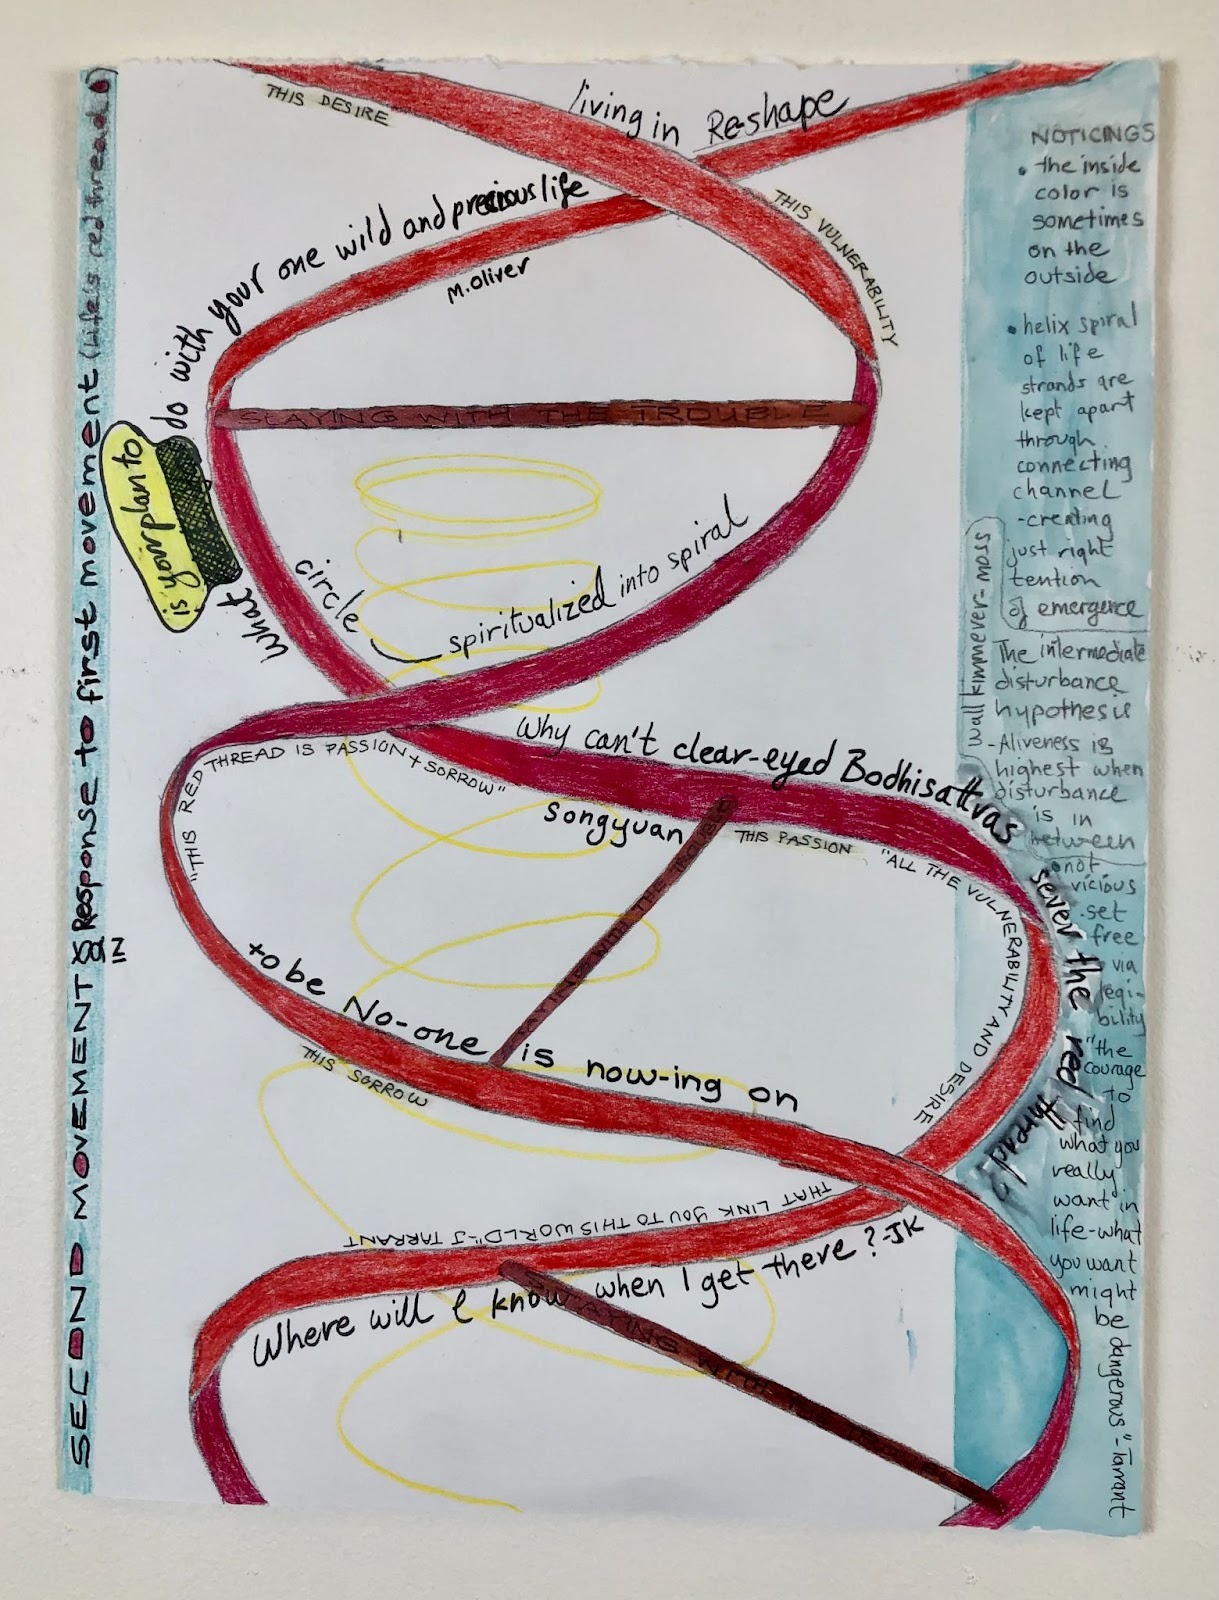 SECOND MOVEMENT & Response to first movement (Life's red thread)
THIS DESIRE
living in Re-shape
THIS VULNERABILITY
What
is your plan to
do with your one wild and precious life
M. Oliver
STAYING WITH THE TROUBLE
circle spiritualized into spiral
"THIS RED THREAD IS PASSION + SORROW"
Why can't clear-eyed Bodhisattvas sever the red thread?
Songyuan
THIS PASSION
"ALL THE VULNERABILITY AND DESIRE
THAT LINK YOU TO THIS WORLD"-J TARRANT
WITH THE TROUBLE
to be No-one is now-ing on
THIS SORROW
Where will I know when I get there?-JK
STAYING WITH
NOTICINGS
• the inside
color is
sometimes
on the
outside
• helix spiral
of life
strands are
kept apart
through
connecting
channel
-creating
just right
tention
of emergence
wall kimmerer-moss
The intermediate
disturbance
hypothesis
-Aliveness is
highest when
disturbance
is in
between
not
vicious
set
free
via
legi-
bility
"the
courage
to
find
what you
really
want in
life-what
you want
might
be
dangerous"-Tarrant